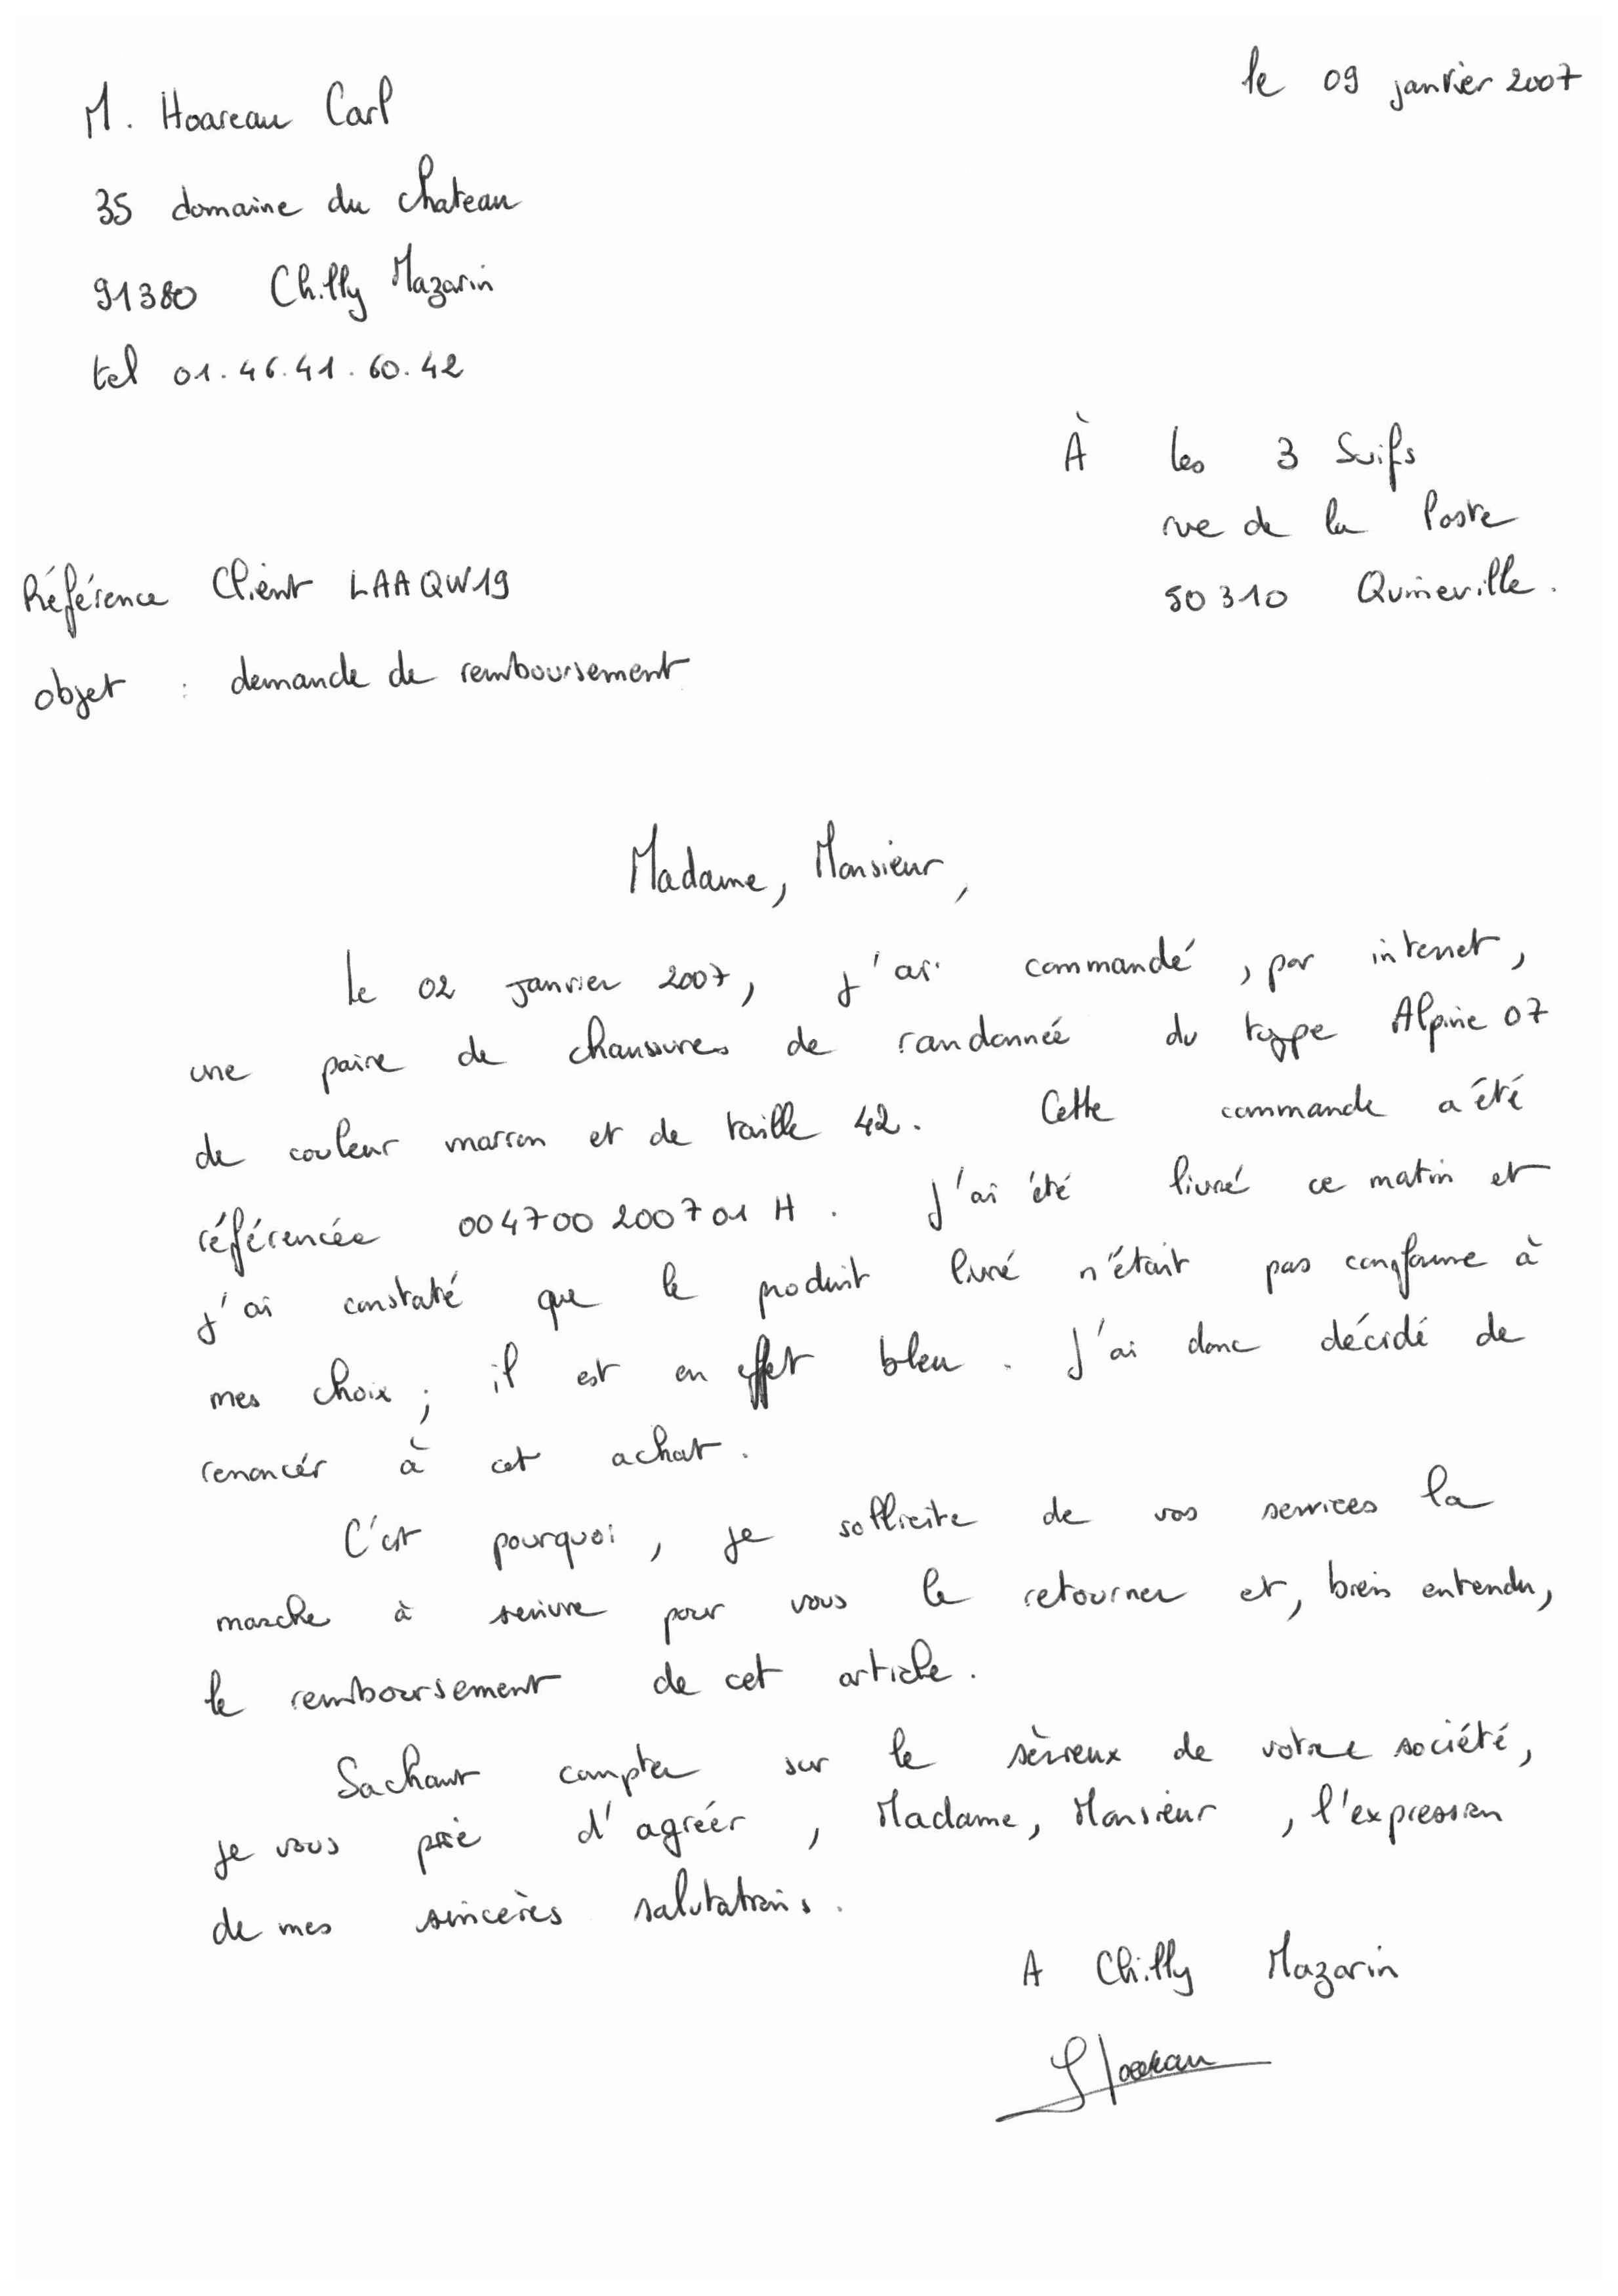 le 09 janvier 2007
M. Hoareau Carl
35 domaine du chateau
91380 Chilly Mazarin
tel 01.46.41.60.42
À les 3 Suifs
rue de la Poste
50310 Quineville.
Référence Client LAAQW19
objet : demande de remboursement
Madame, Monsieur,
Le 02 janvier 2007, j'ai commandé, par internet,
une paire de chaussures de randonnée du type Alpine 07
de couleur marron et de taille 42. Cette commande a été
référencée 004700200701H. J'ai été livré ce matin et
j'ai constaté que le produit livré n'était pas conforme à
mes choix; il est en effet bleu. J'ai donc décidé de
renoncer à cet achat.
C'est pourquoi, je sollicite de vos services la
marche à suivre pour vous le retourner et, bien entendu,
le remboursement de cet article.
Sachant compter sur le sérieux de votre société,
je vous prie d'agréer, Madame, Monsieur, l'expression
de mes sincères salutations.
A Chilly Mazarin
Hoareau